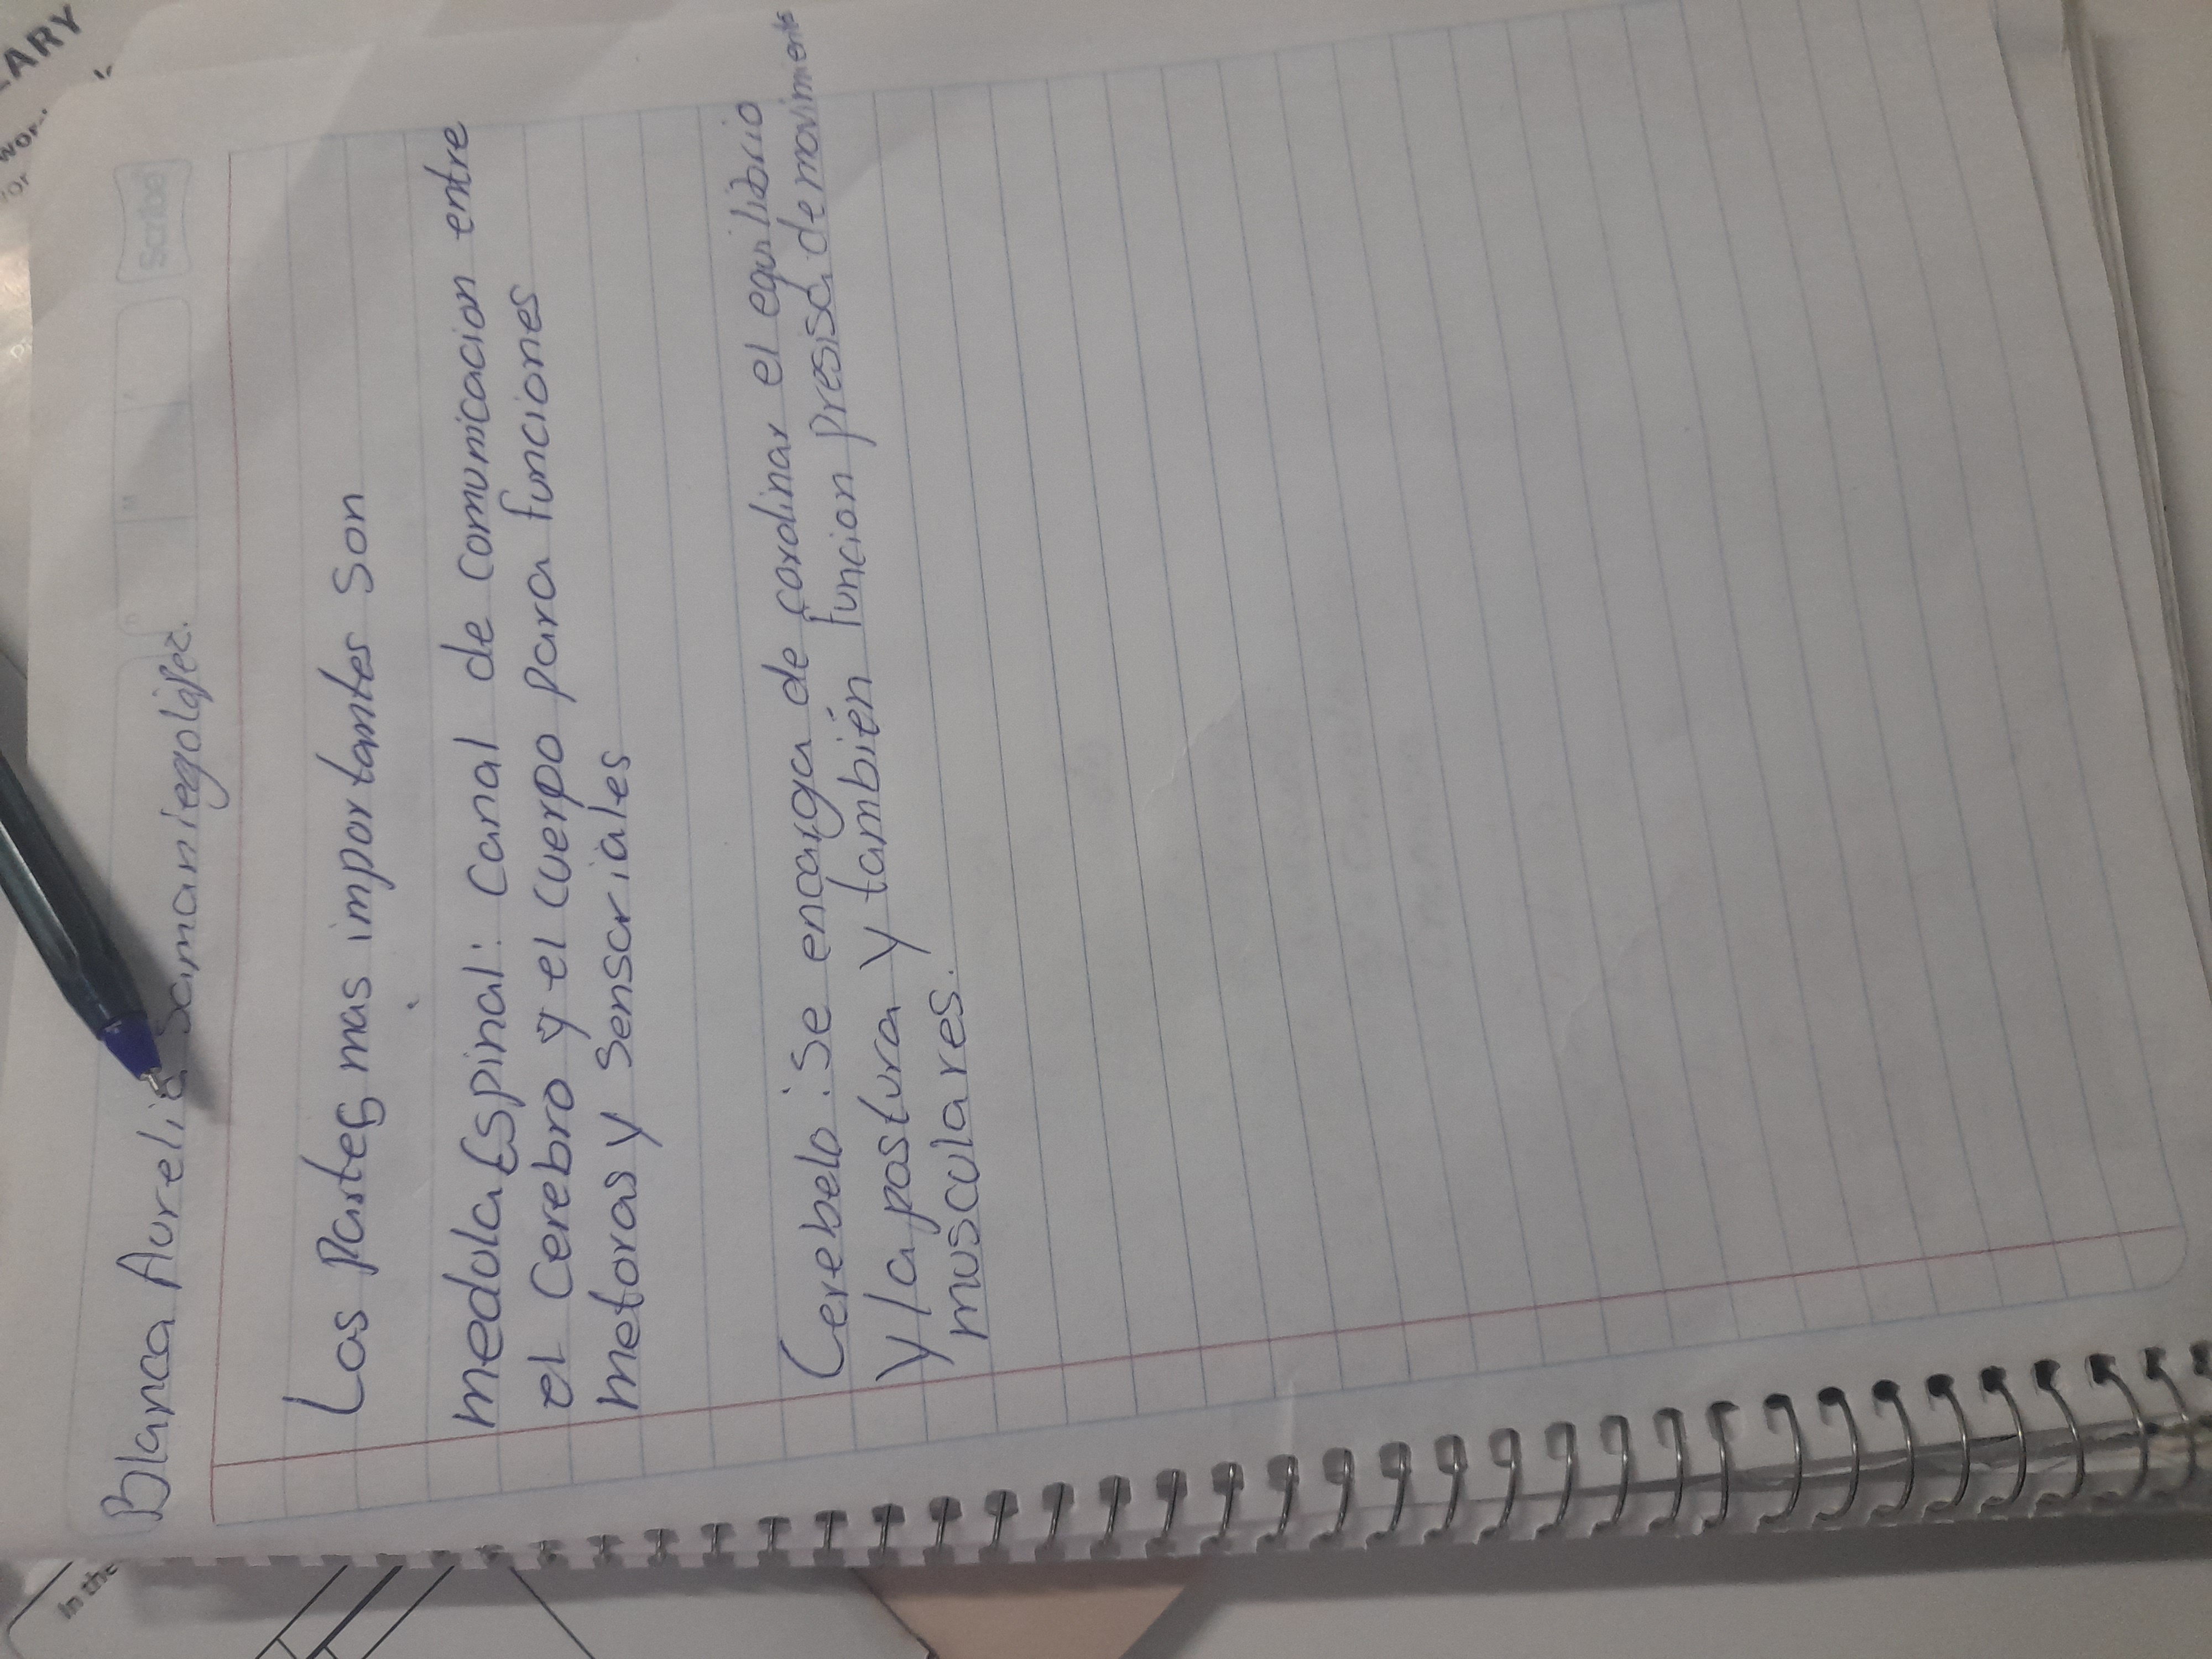 Blanca Aurelia Samaniego López.
Las Partes mas importantes son
medula Espinal: Canal de comunicacion entre
el Cerebro y el cuerpo para funciones
metoras y senscriales
Cerebelo: Se encarga de cordinar el equilibrio
y la postura y también funcion presisa de movimiento
musculares.
Scribe
ARY
wor
or
In the